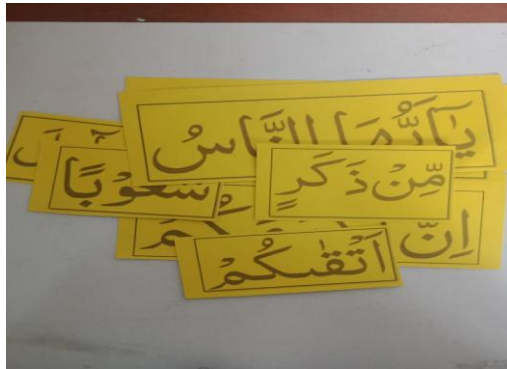 يٰٓاَيُّهَا النَّاسُ
مِّنْ ذَكَرٍ
شُعُوْبًا
اِنَّ
اَتْقٰىكُمْ